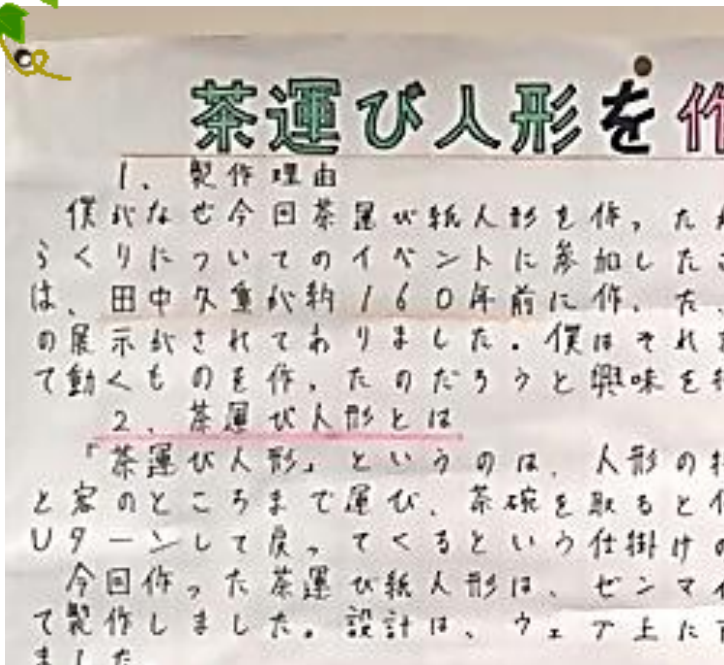 茶運び人形を作
1、製作理由
僕がなぜ今回茶運び紙人形を作った
らくりについてのイベントに参加したこ
は、田中久重が約160年前に作った
の展示がされてありました。僕はそれを
て動くものを作ったのだろうと興味を持
2、茶運び人形とは
「茶運び人形」というのは、人形の持
と客のところまで運び、茶碗を取ると
Uターンして戻ってくるという仕掛けの
今回作った茶運び紙人形は、ゼンマイ
て製作しました。設計は、ウェア上に
ました